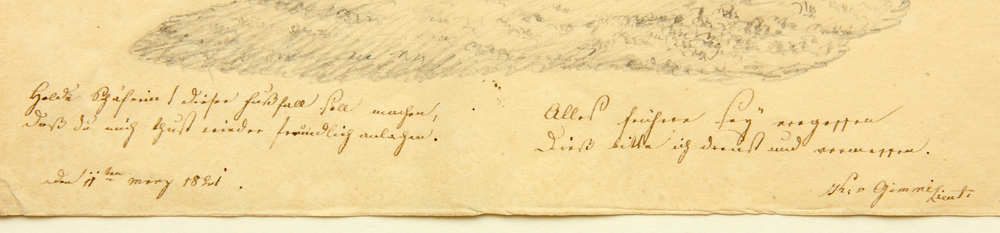 Holde Schäferin! dieser Fußfall soll machen,
Daß du mich thust wieder freundlich anlachen.
den 11ten Merz 1821.
Alles frühere sey vergessen
Dieß bitte ich dreust und vermessen.
Gimmi Lieut.